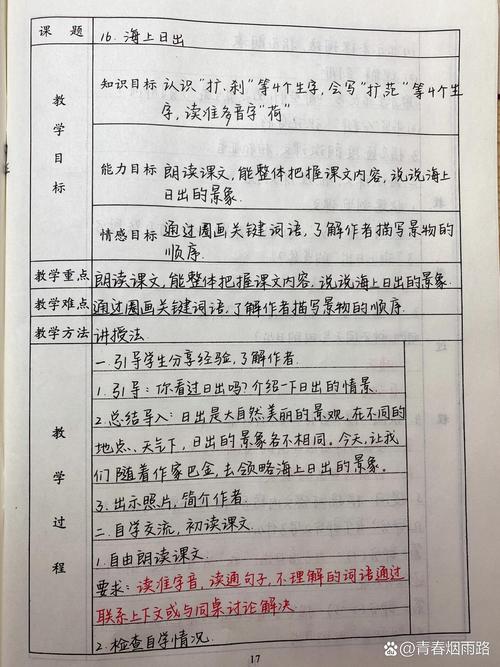 课 题 16. 海上日出
教学目标
知识目标 认识“扩、刹”等4个生字,会写“扩、范”等4个生
字,读准多音字“荷”
能力目标 朗读课文,能整体把握课文内容,说说海上
日出的景象.
情感目标 通过圈画关键词语,了解作者描写景物的
顺序.
教学重点 朗读课文,能整体把握课文内容,说说海上日出的景象.
教学难点 通过圈画关键词语,了解作者描写景物的顺序.
教学方法 讲授法.
教学过程
一.引导学生分享经验,了解作者.
1.引导:你看过日出吗?介绍一下日出的情景.
2.总结导入:日出是大自然美丽的景观,在不同的
地点、天气下,日出的景象各不相同。今天,让我
们随着作家巴金,去领略海上日出的景象。
3.出示照片,简介作者.
二.自学交流,初读课文.
1.自由朗读课文.
要求:读准字音,读通句子,不理解的词语通过
联系上下文或与同桌讨论解决
2.检查自学情况.
17
@青春烟雨路